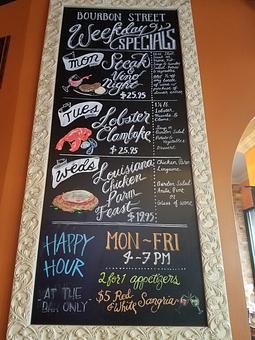 BOURBON STREET
Weekday
SPECIALS
mon
Steak
& Vino
Night
$25.95
Tues
Lobster
Clambake
$25.95
1¼ lb.
Lobster,
Mussels &
Clams
Soup or
Garden Salad
Potato &
Vegetables
Dessert
Weds
Louisiana
Chicken
Parm
Feast
$19.95
Chicken Parm
Linguine
Garden Salad
Glass of wine
HAPPY
HOUR
AT THE
BAR ONLY
MON~FRI
4-7 PM
2 for 1 appetizers
$5 Red
& White Sangria